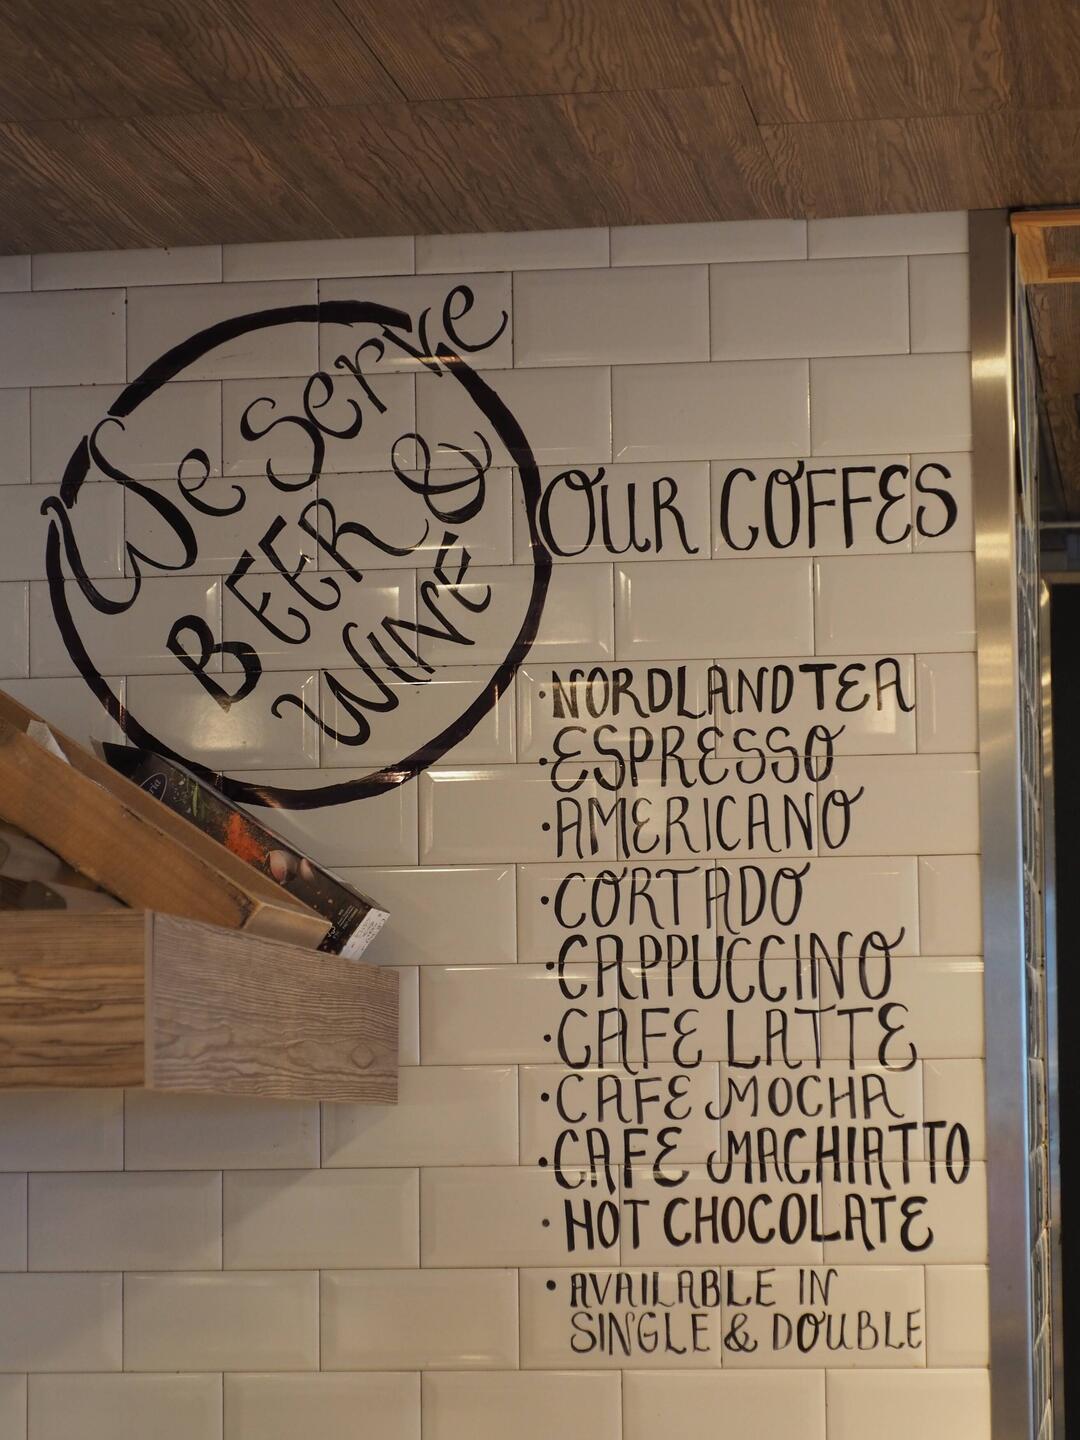 We Serve
BEER &
WINE
OUR COFFES
·NORDLAND TEA
·ESPRESSO
·AMERICANO
·CORTADO
·CAPPUCCINO
·CAFE LATTE
·CAFE MOCHA
·CAFE MACHIATTO
·HOT CHOCOLATE
·AVAILABLE IN
SINGLE & DOUBLE